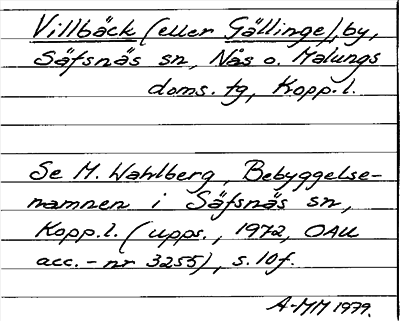 Villbäck (eller Gällinge), by,
Säfsnäs sn, Nås o. Malungs
doms. tg, Kopp. l.
Se M. Wahlberg, Bebyggelse-
namnen i Säfsnäs sn,
Kopp. l. (upps., 1972, OAU
acc. - nr 3255), s. 10 f.
A-MM 1979.